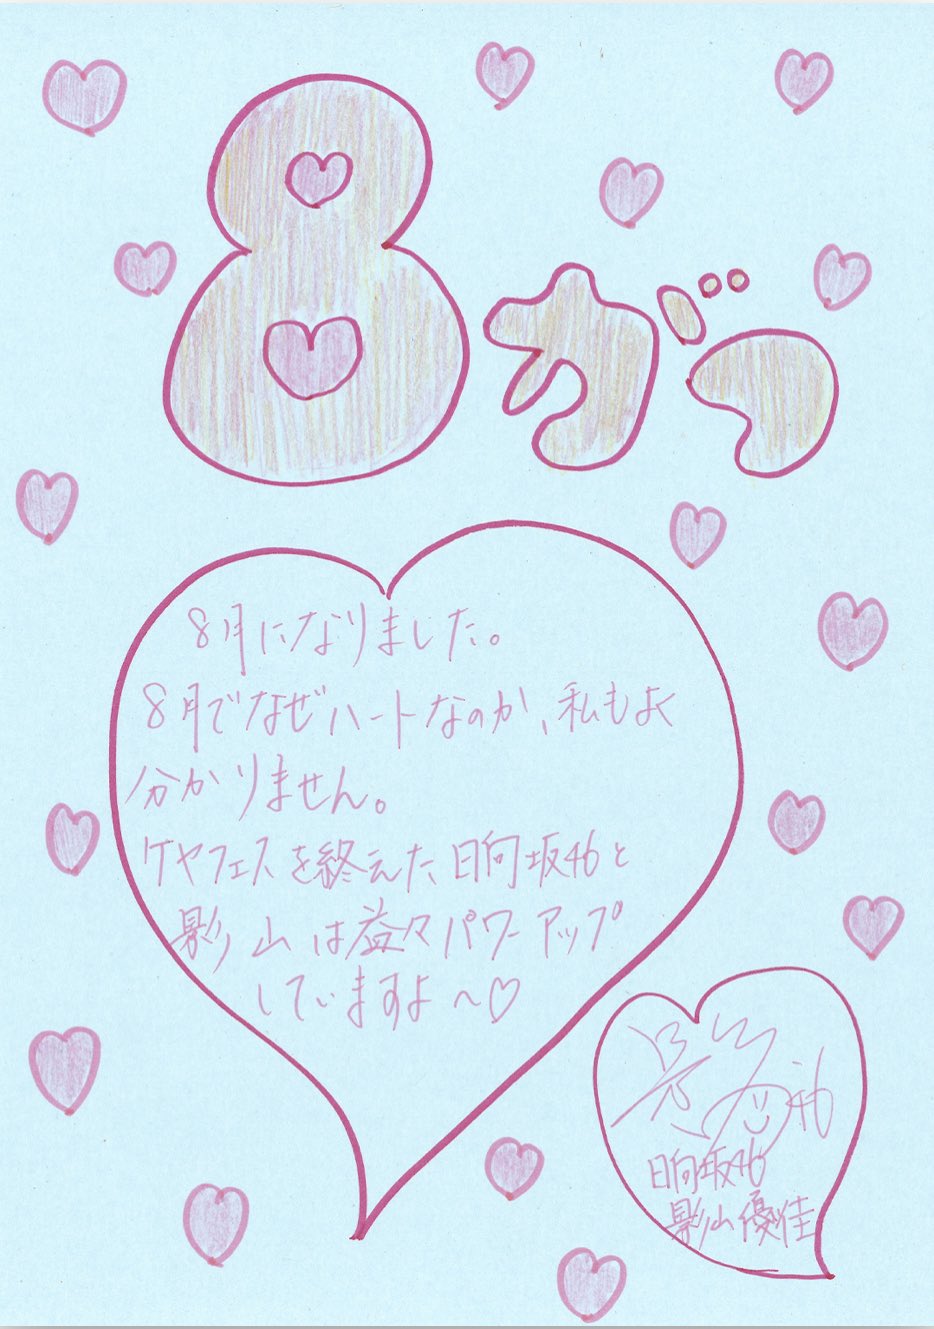 8がつ
8月になりました。
8月でなぜハートなのか、私もよく
分かりません。
ケヤフェスを終えた日向坂46と
影山は益々パワーアップ
していますよ〜♡
46
日向坂46
影山優佳